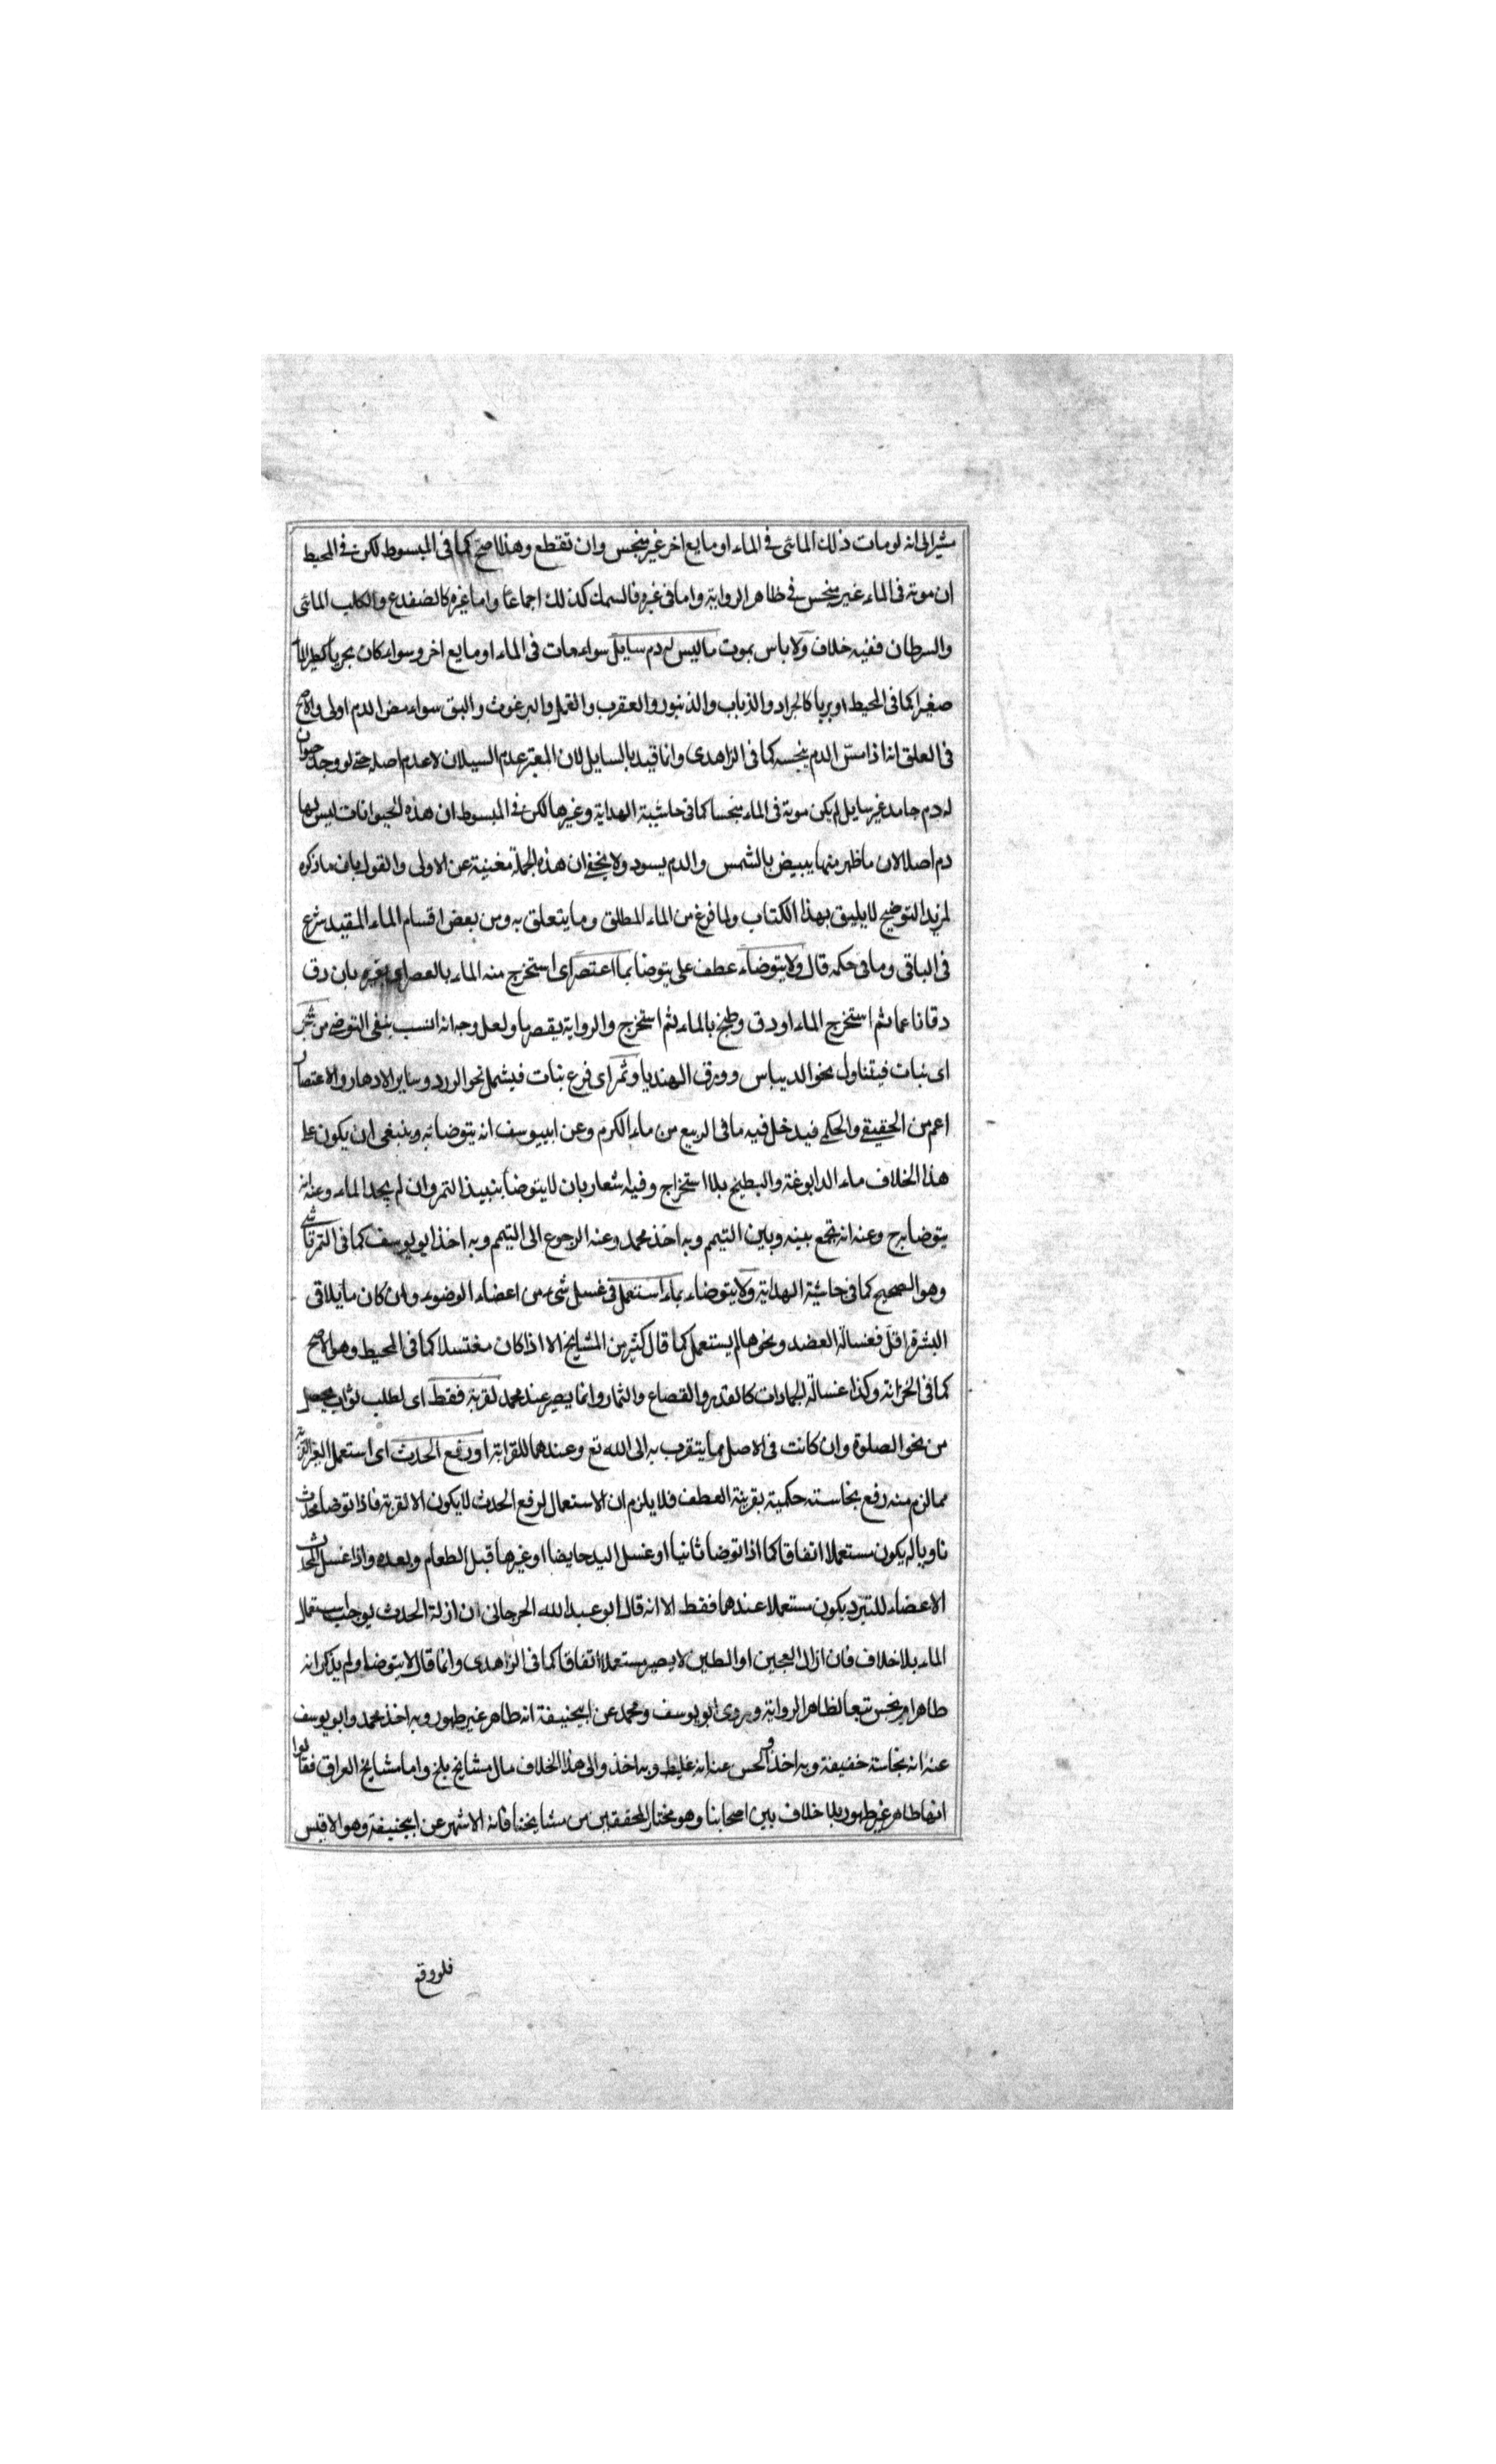 مشيرا الى انه لو مات ذلك المائى فى الماء او مايع اخر غير منجس وان تقطع وهذا اصح كما فى المبسوط لكن فى المحيط
ان موته فى الماء غير منجس فى ظاهر الرواية واما فى غيره فالسمك كذلك اجماعا واما غيره كالضفدع والكلب المائى
والسرطان ففيه خلاف ولا باس بموت ما ليس له دم سايل سواء مات فى الماء او مايع اخر وسواء كان بحريا كطير الماء
صغيرا كما فى المحيط او بريا كالجراد والذباب والذنبور والعقرب والقمل والبرغوث والبق سواء مص الدم اولى والاصح
فى العلق انه اذا مسّ الدم ينجسه كما فى الزاهدى وانما قيد بالسايل لان المعتبر عدم السيلان لا عدم اصله حتى لو وجد حيوان
له دم جامد غير سايل لم يكن موته فى الماء منجسا كما فى حاشية الهداية وغيرها لكن فى المبسوط ان هذه الحيوانات ليس لها
دم اصلا لان ما ظهر منها يبيض بالشمس والدم يسود ولا يخفى ان هذه الجملة مغنية عن الاولى والقول بان ما ذكره
لمزيد التوضيح لا يليق بهذا الكتاب ولما فرغ من الماء المطلق وما يتعلق به ومن بعض اقسام الماء المقيد شرع
فى الباقى وما فى حكمه قال ولا يتوضاء عطف على يتوضا بما اعتصر اى استخرج منه الماء بالعصر او بغيره بان دق
دقا ناعما ثم استخرج الماء او دق وطبخ بالماء ثم استخرج والرواية بقصر ما ولعل وجه انه انسب بنفى التوضى من شجر
اى نبات فيتناول نحو الديباس وورق الهنديا وثمر اى فرع نبات فيشمل نحو الورد وساير الادهار والاعتصار
اعم من الحقيقى والحكمى فيدخل فيه ما فى الربيع من ماء الكرم وعن ابييوسف انه يتوضا به وينبغى ان يكون على
هذا الخلاف ماء الدابوغة والبطيخ بلا استخراج وفيه اشعار بان لا يتوضا بنبيذ التمر وان لم يجد الماء وعنه انه
يتوضا به ح وعنه انه يجمع بينه وبين التيمم وبه اخذ محمد وعنه الرجوع الى التيمم وبه اخذ ابو يوسف كما فى التمرتاشى
وهو الصحيح كما فى حاشية الهداية ولا يتوضاء بماء استعمل فى غسل شىء من اعضاء الوضوء وان كان ما يلاقى
البشرة اقل فغسالة العضد ونحوها لم يستعمل كما قال كثير من المشايخ الا اذا كان مغتسلا كما فى المحيط وهو الاصح
كما فى الخزانة وكذا غسالة الجمادات كالقدر والقصاع والثمار وانما يصير عند محمد لقربة فقط اى لطلب ثواب يحصل
من نحو الصلوة وان كانت فى الاصل ما يتقرب به الى الله تع وعندهما للقرابة او رفع الحدث اى استعمل لغير القربة
مما لزم منه رفع نجاسته حكمية بقرينة العطف فلا يلزم ان الاستعمال لرفع الحدث لا يكون الا لقربة فاذا توضا محدث
ناويا له يكون مستعملا اتفاقا كما اذا توضا ثانيا او غسل اليد حايضا او غيرها قبل الطعام وبعده واذا غسل المحدث
الاعضاء للتبرد يكون مستعملا عندهما فقط الا انه قال ابو عبد الله الجرجانى ان ازلة الحدث يوجب استعمال
الماء بلا خلاف فان ازال العجين او الطين لا يصير مستعملا اتفاقا كما فى الزاهدى وانما قال لا يتوضا ولم يذكر انه
طاهر او نجس تبعا لظاهر الرواية وروى ابو يوسف ومحمد عن ابيحنيفة انه طاهر غير طهور وبه اخذ محمد وابو يوسف
عنه انه نجاسة خفيفة وبه اخذ والحسن عنه انه غليظ وبه اخذ والى هذا الخلاف مال مشايخ بلخ واما مشايخ العراق فقالوا
انها طاهر غير طهور بلا خلاف بين اصحابنا وهو مختار المحققين من مشايخنا فانه الاشهر عن ابيحنيفة وهو الاقيس
فلو وقع